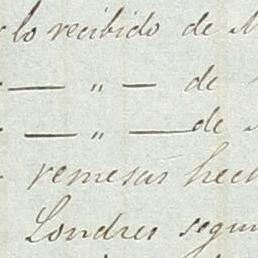 lo recibido de
— " — de
— " — de
remesas hech
Londres segun